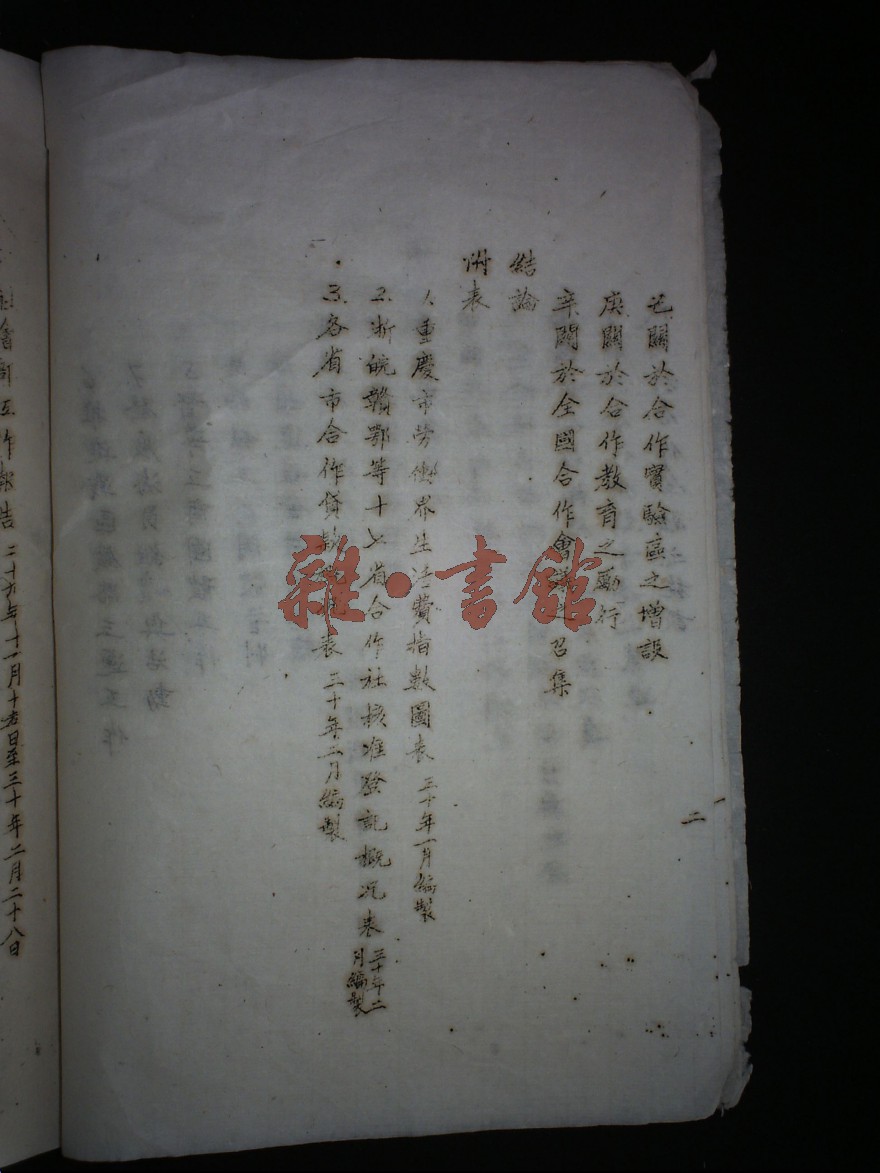 己關於合作實驗區之增設
庚關於合作教育之勵行
辛關於全國合作會議之召集
結論
附表
1.重慶市勞働界生活費指數圖表 三十年一月編製
2.浙皖贛鄂等十七省合作社核准登記概况表 三十年二月編製
3.各省市合作貸款 表 三十年二月編製
二
工作報告 二十九年十一月十 日至三十年二月二十八日
雜·書館